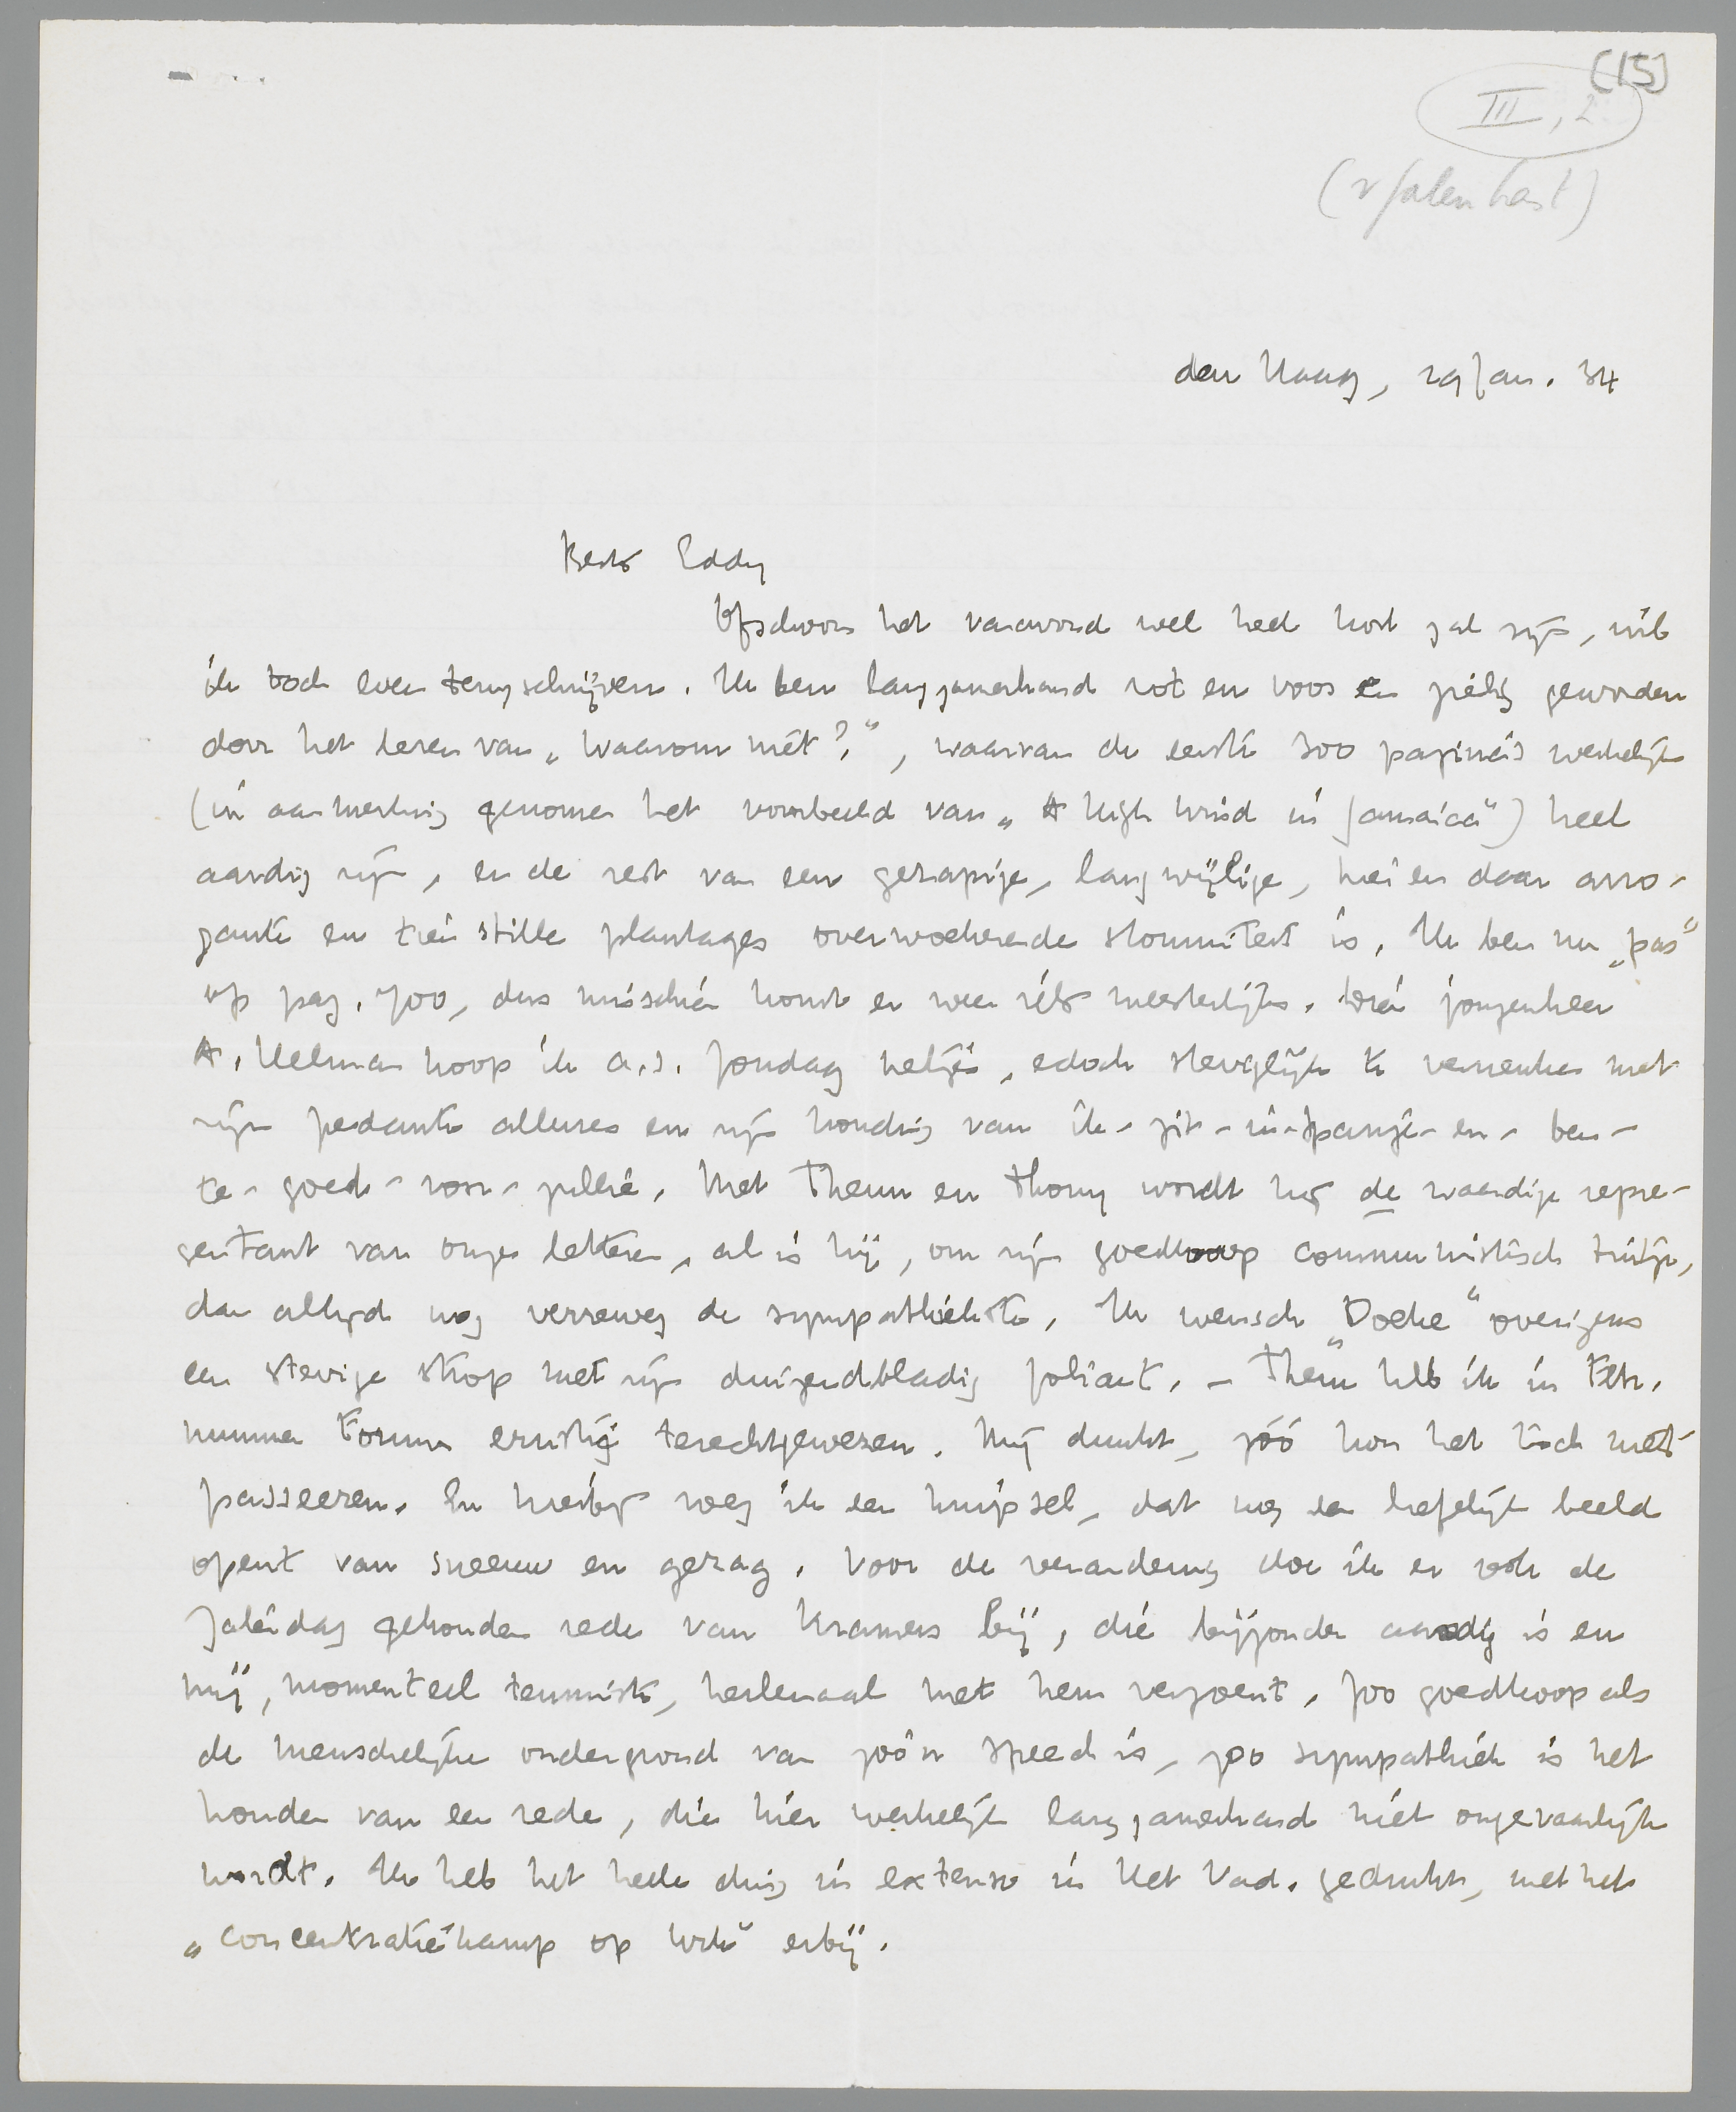 (15)
III, 2
den Haag, 29 Jan. 34
Beste Eddy
Ofschoon het vanavond wel heel kort zal zijn, wil
ik toch even terugschrijven. Ik ben langzamerhand rot en voos en zielig geworden
door het lezen van „Waarom niet?", waarvan de eerste 300 pagina's werkelijk
(in aanmerking genomen het voorbeeld van „A High Wind in Jamaica") heel
aardig zijn, en de rest van een gezapige, langwijlige, hier en daar arro-
gante en trein stille plantages overwoekerende stommiteit is. Ik ben nu „pas"
op pag. 700, dus misschien komt er weer iets meesterlijks. Dien jongenheer
A. Helman hoop ik a.s. Zondag netjes, edoch steviglijk te vermenken met
zijn pedante allures en zijn houding van ik-zit-in-Spanje-en-ben-
te-goed-voor-jullie. Met Theun en Thony wordt hij de waardige repre-
sentant van onze letteren, al is hij, om zijn goedkoop communistisch tintje,
dan altijd nog verreweg de sympathiekste. Ik wensch „Doeke" overigens
een stevige strop met zijn duizendbladig foliant. - Theun heb ik in Febr.
nummer Forum ernstig terechtgewezen. Mij dunkt, zóó kon het toch niet
passeeren. En hierbij voeg ik een knipsel, dat nog een liefelijk beeld
opent van sneeuw en gezag. Voor de verandering doe ik er ook de
Zaterdag gehouden rede van Kramers bij, die bijzonder aardig is en
mij, momenteel tenminste, heelemaal met hem verzoent. Zoo goedkoop als
de menschelijke ondergrond van zóó'n speech is, zoo sympathiek is het
houden van een rede, die hier werkelijk langzamerhand niet ongevaarlijk
wordt. Ik heb het heele ding in extenso in Het Vad. gedrukt, met het
„concentratiekamp op wiki" erbij.